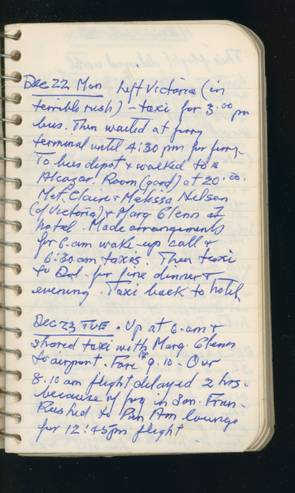 Dec 22 Mon Left Victoria (in
terrible rush) - taxi for 3.00 pm
bus. Then waited at ferry
terminal until 4:30 pm for ferry.
To bus depot & walked to
Alcazar. Room (good) at 20.00.
Met Claire & Melissa Nelson
(of Victoria) & Marg Glenn at
hotel. Made arrangements
for 6 am wake-up call &
6:30 am taxis. Then taxi
to Dad. for fine dinner &
evening. Taxi back to hotel.
Dec 23 TUE. Up at 6 am &
shared taxi with Marg. Glenn
to airport. Fare $9.10. Our
8.10 am flight delayed 2 hrs.
because of fog in San. Fran.
Rushed to Pan Am lounge
for 12:45pm flight